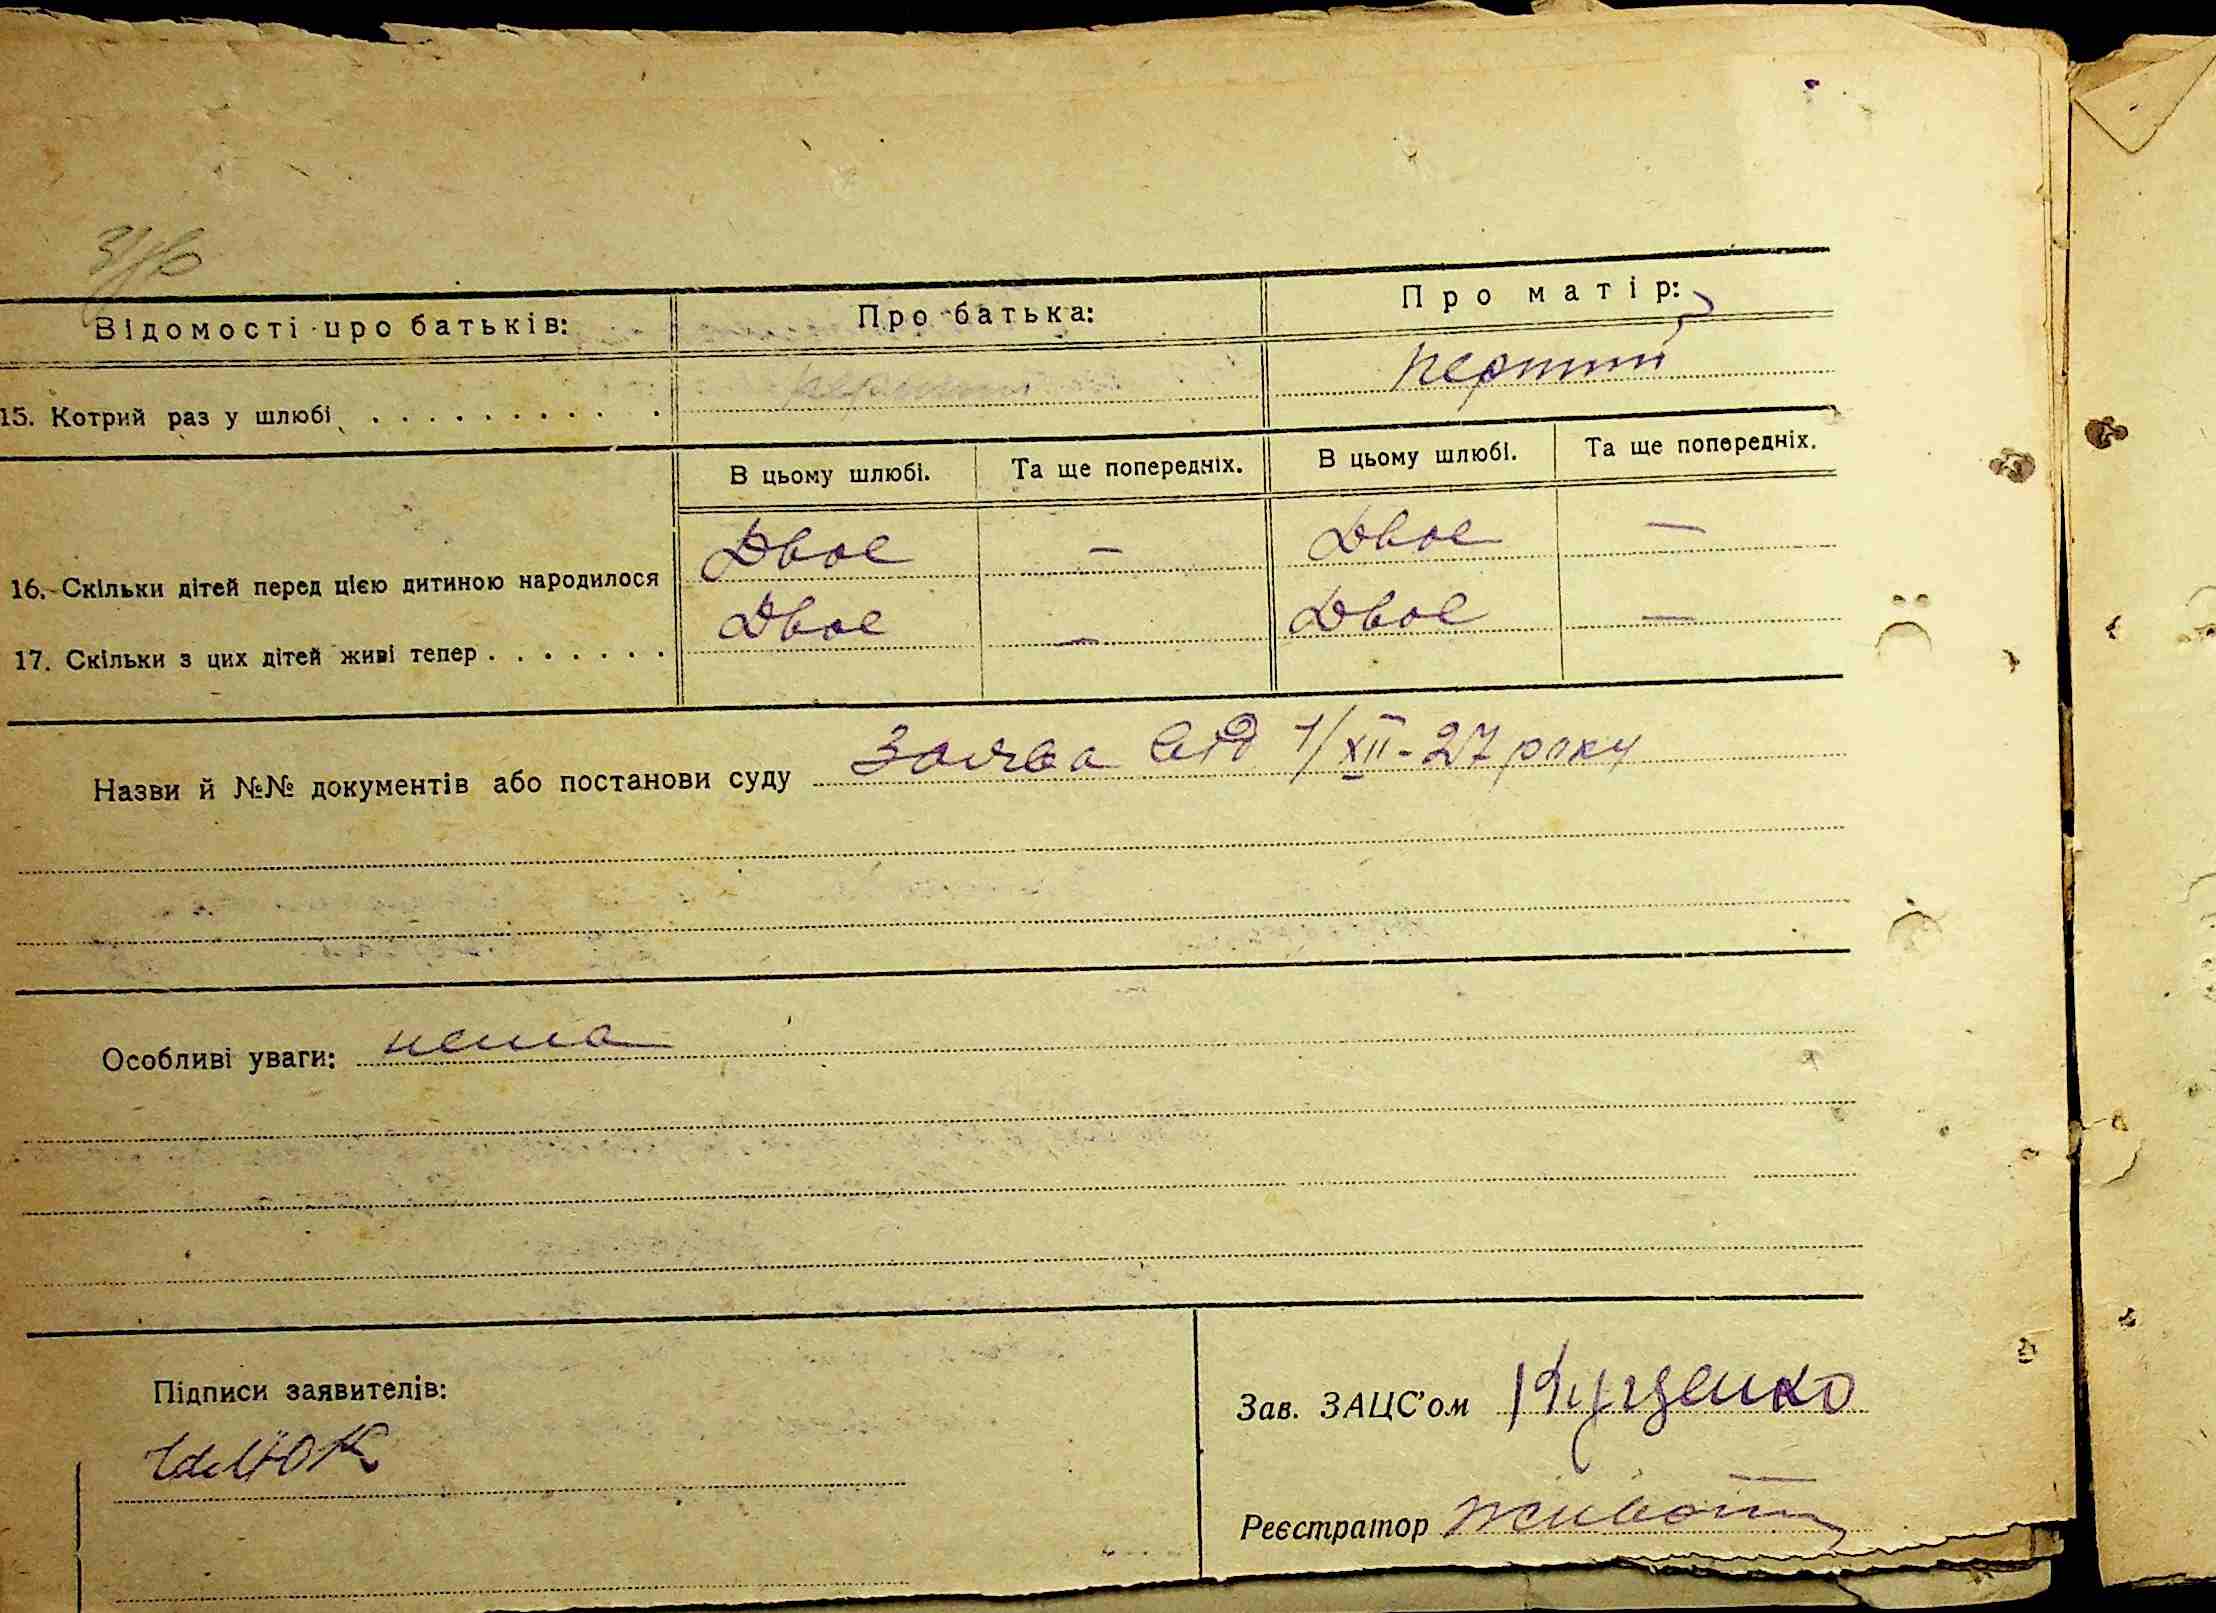 Відомості про батьків: Про батька: Про матір:
15. Котрий раз у шлюбі . . . . . . . . . . перший перший
В цьому шлюбі. Та ще попередніх. В цьому шлюбі. Та ще попередніх.
16. Скільки дітей перед цією дитиною народилося Двое — Двое —
17. Скільки з цих дітей живі тепер . . . . . . . Двое — Двое —
Назви й №№ документів або постанови суду Заява від 1/XII-27 року
Особливі уваги: нема
Підписи заявителів:
Зав. ЗАЦС'ом Куценко
Реєстратор